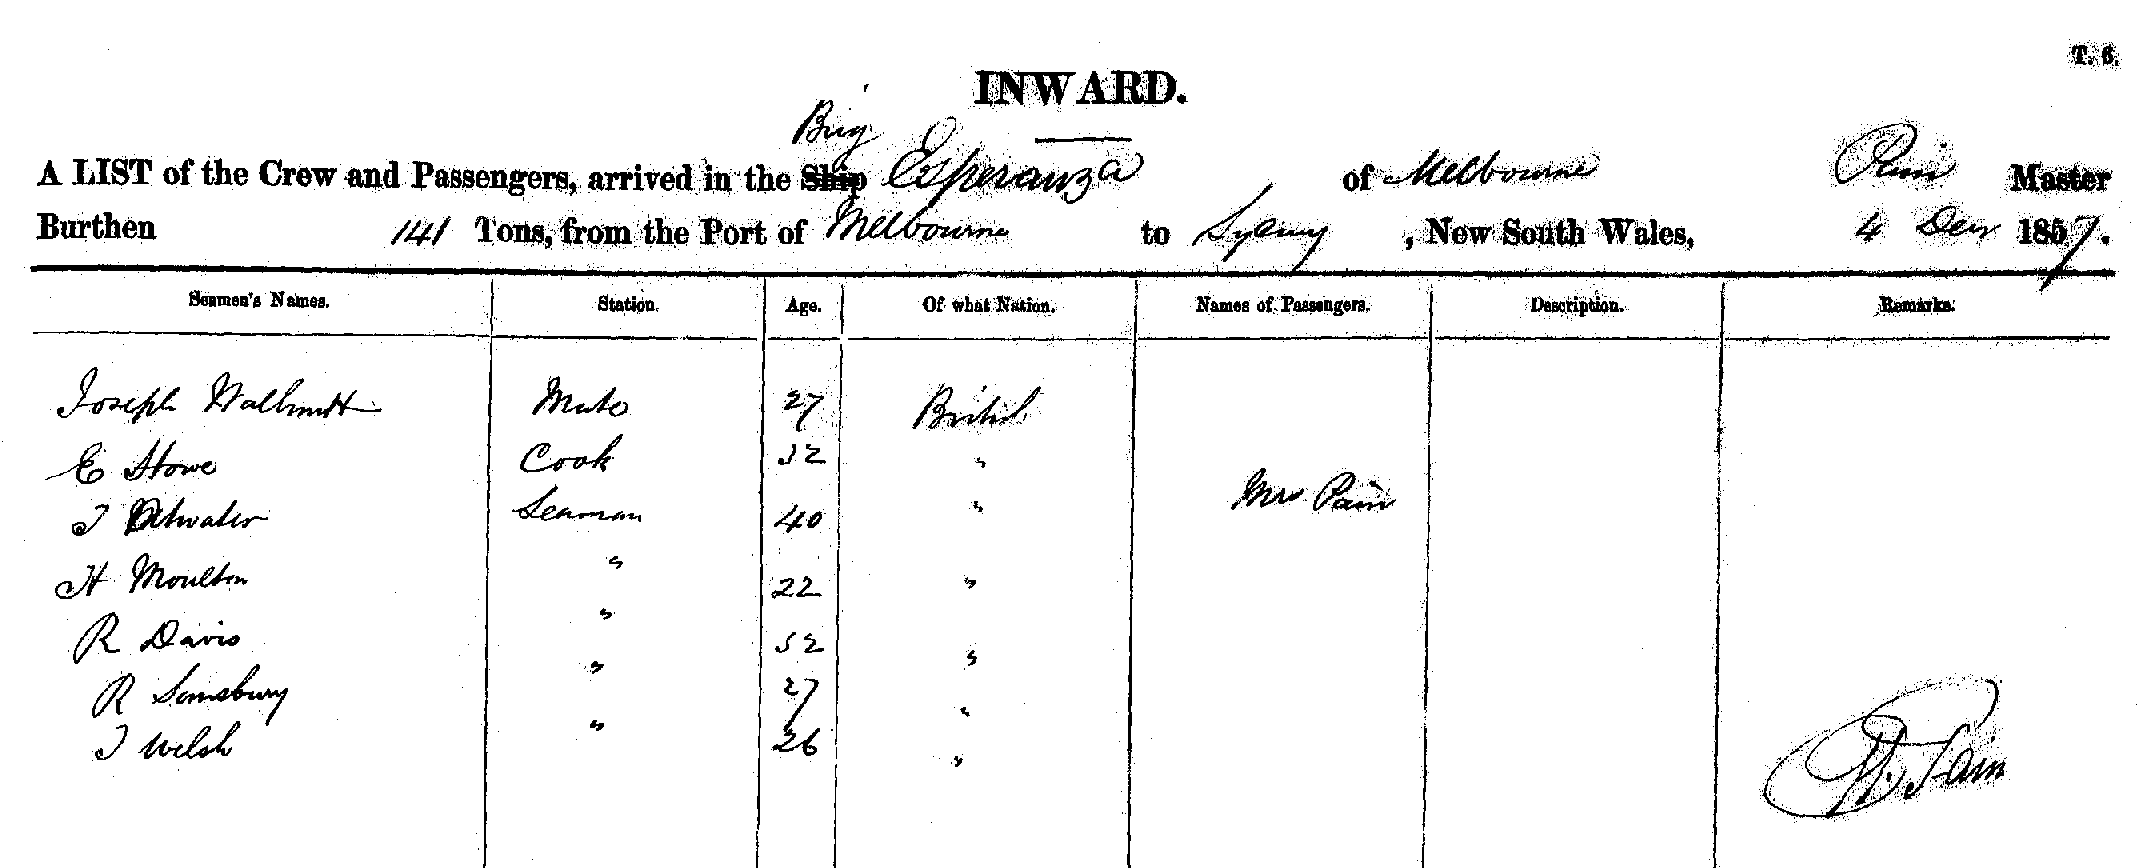 T. 6.
INWARD.
Brig
A LIST of the Crew and Passengers, arrived in the Ship Esperanza of Melbourne Pain Master
Burthen 141 Tons, from the Port of Melbourne to Sydney, New South Wales, 4 Decr 1857.
Seamen's Names. Station. Age. Of what Nation. Names of Passengers. Description. Remarks.
Joseph Mate 27 British
E Stowe Cook 32 "
Mrs Pain
J Seaman 40 "
H Moulton " 22 "
R Davis " 32 "
R Samsbury " 27 "
J Welsh " 26 "
Pain